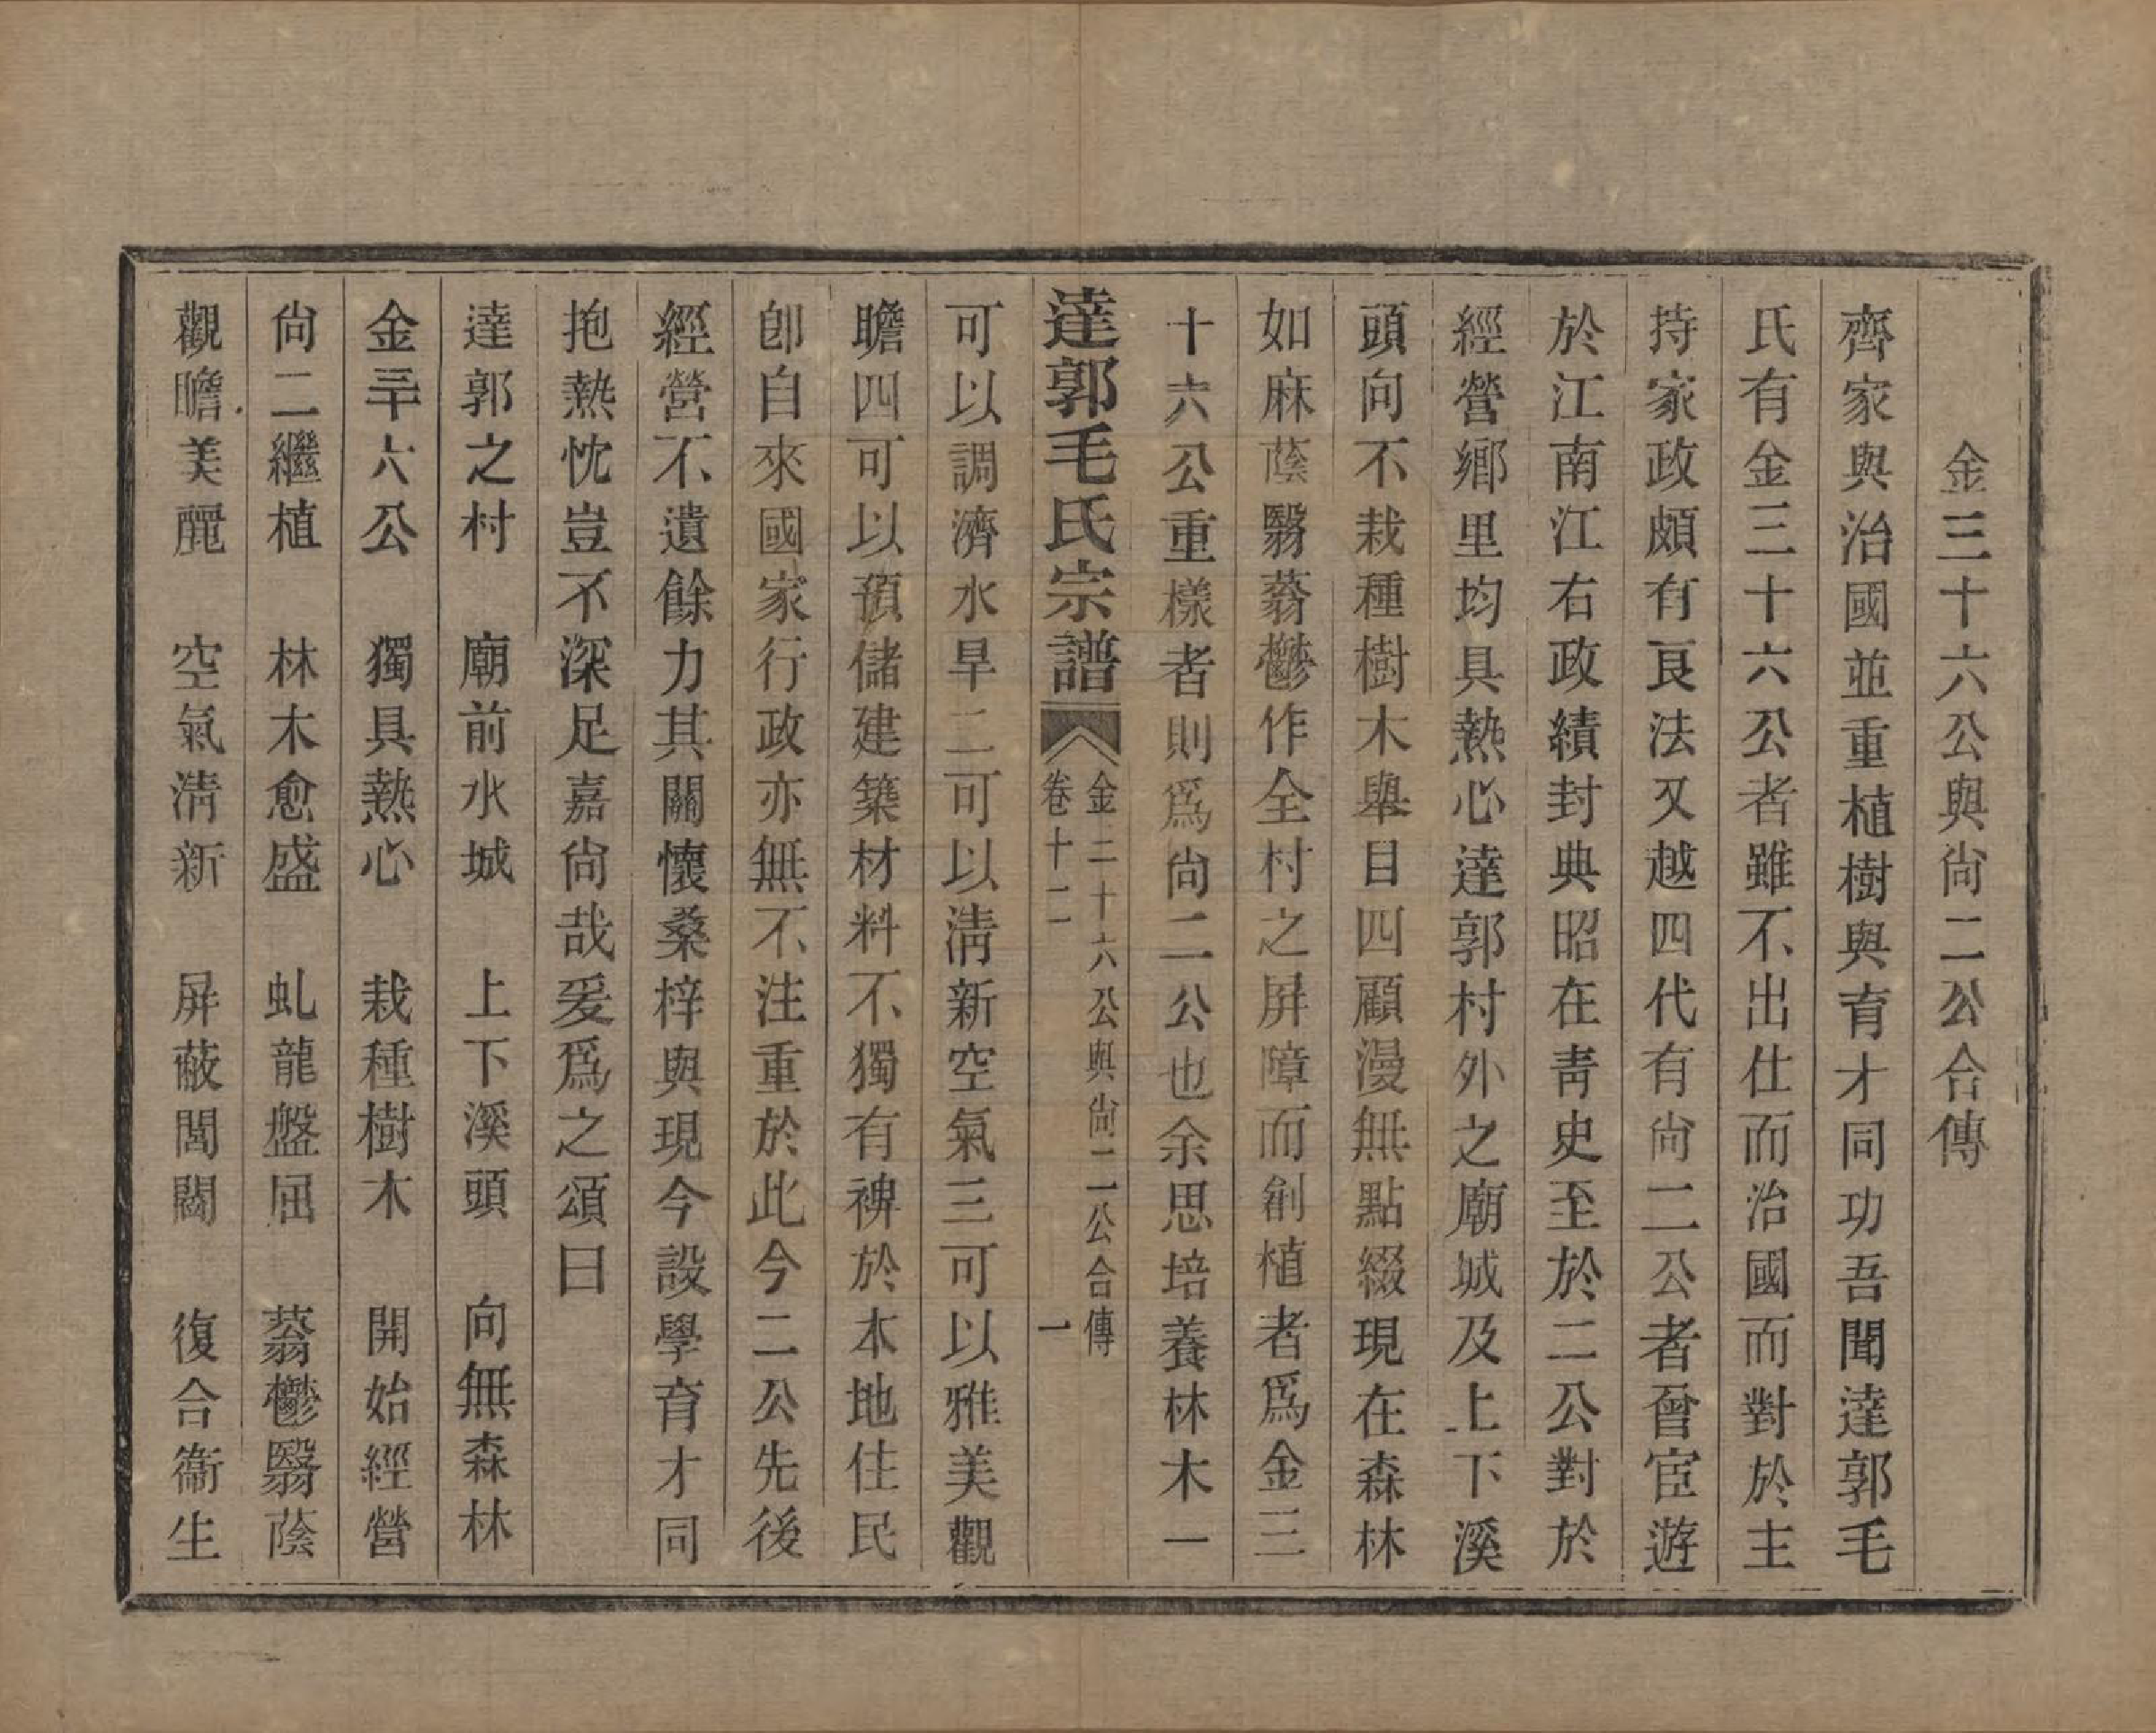 金三十六公與尙二公合傳
齊家與治國並重植樹與育才同功吾聞達郭毛
氏有金三十六公者雖不出仕而治國而對於主
持家政頗有良法又越四代有尙二公者曾宦遊
於江南江右政績封典昭在靑史至於二公對於
經營鄉里均具熱心達郭村外之廟城及上下溪
頭向不栽種樹木舉目四顧漫無點綴現在森林
如麻蔭翳蓊鬱作全村之屏障而創植者爲金三
十六公重樣者則爲尙二公也余思培養林木一
達郭毛氏宗譜
金三十六公與尙二公合傳
卷十二
一
可以調濟水旱二可以淸新空氣三可以雅美觀
瞻四可以預儲建築材料不獨有裨於本地住民
卽自來國家行政亦無不注重於此今二公先後
經營不遺餘力其關懷桑梓與現今設學育才同
抱熱忱豈不深足嘉尙哉爰爲之頌曰
達郭之村　廟前水城　上下溪頭　向無森林
金三十六公　獨具熱心　栽種樹木　開始經營
尙二繼植　林木愈盛　虬龍盤屈　蓊鬱翳蔭
觀瞻美麗　空氣淸新　屏蔽閭閻　復合衞生